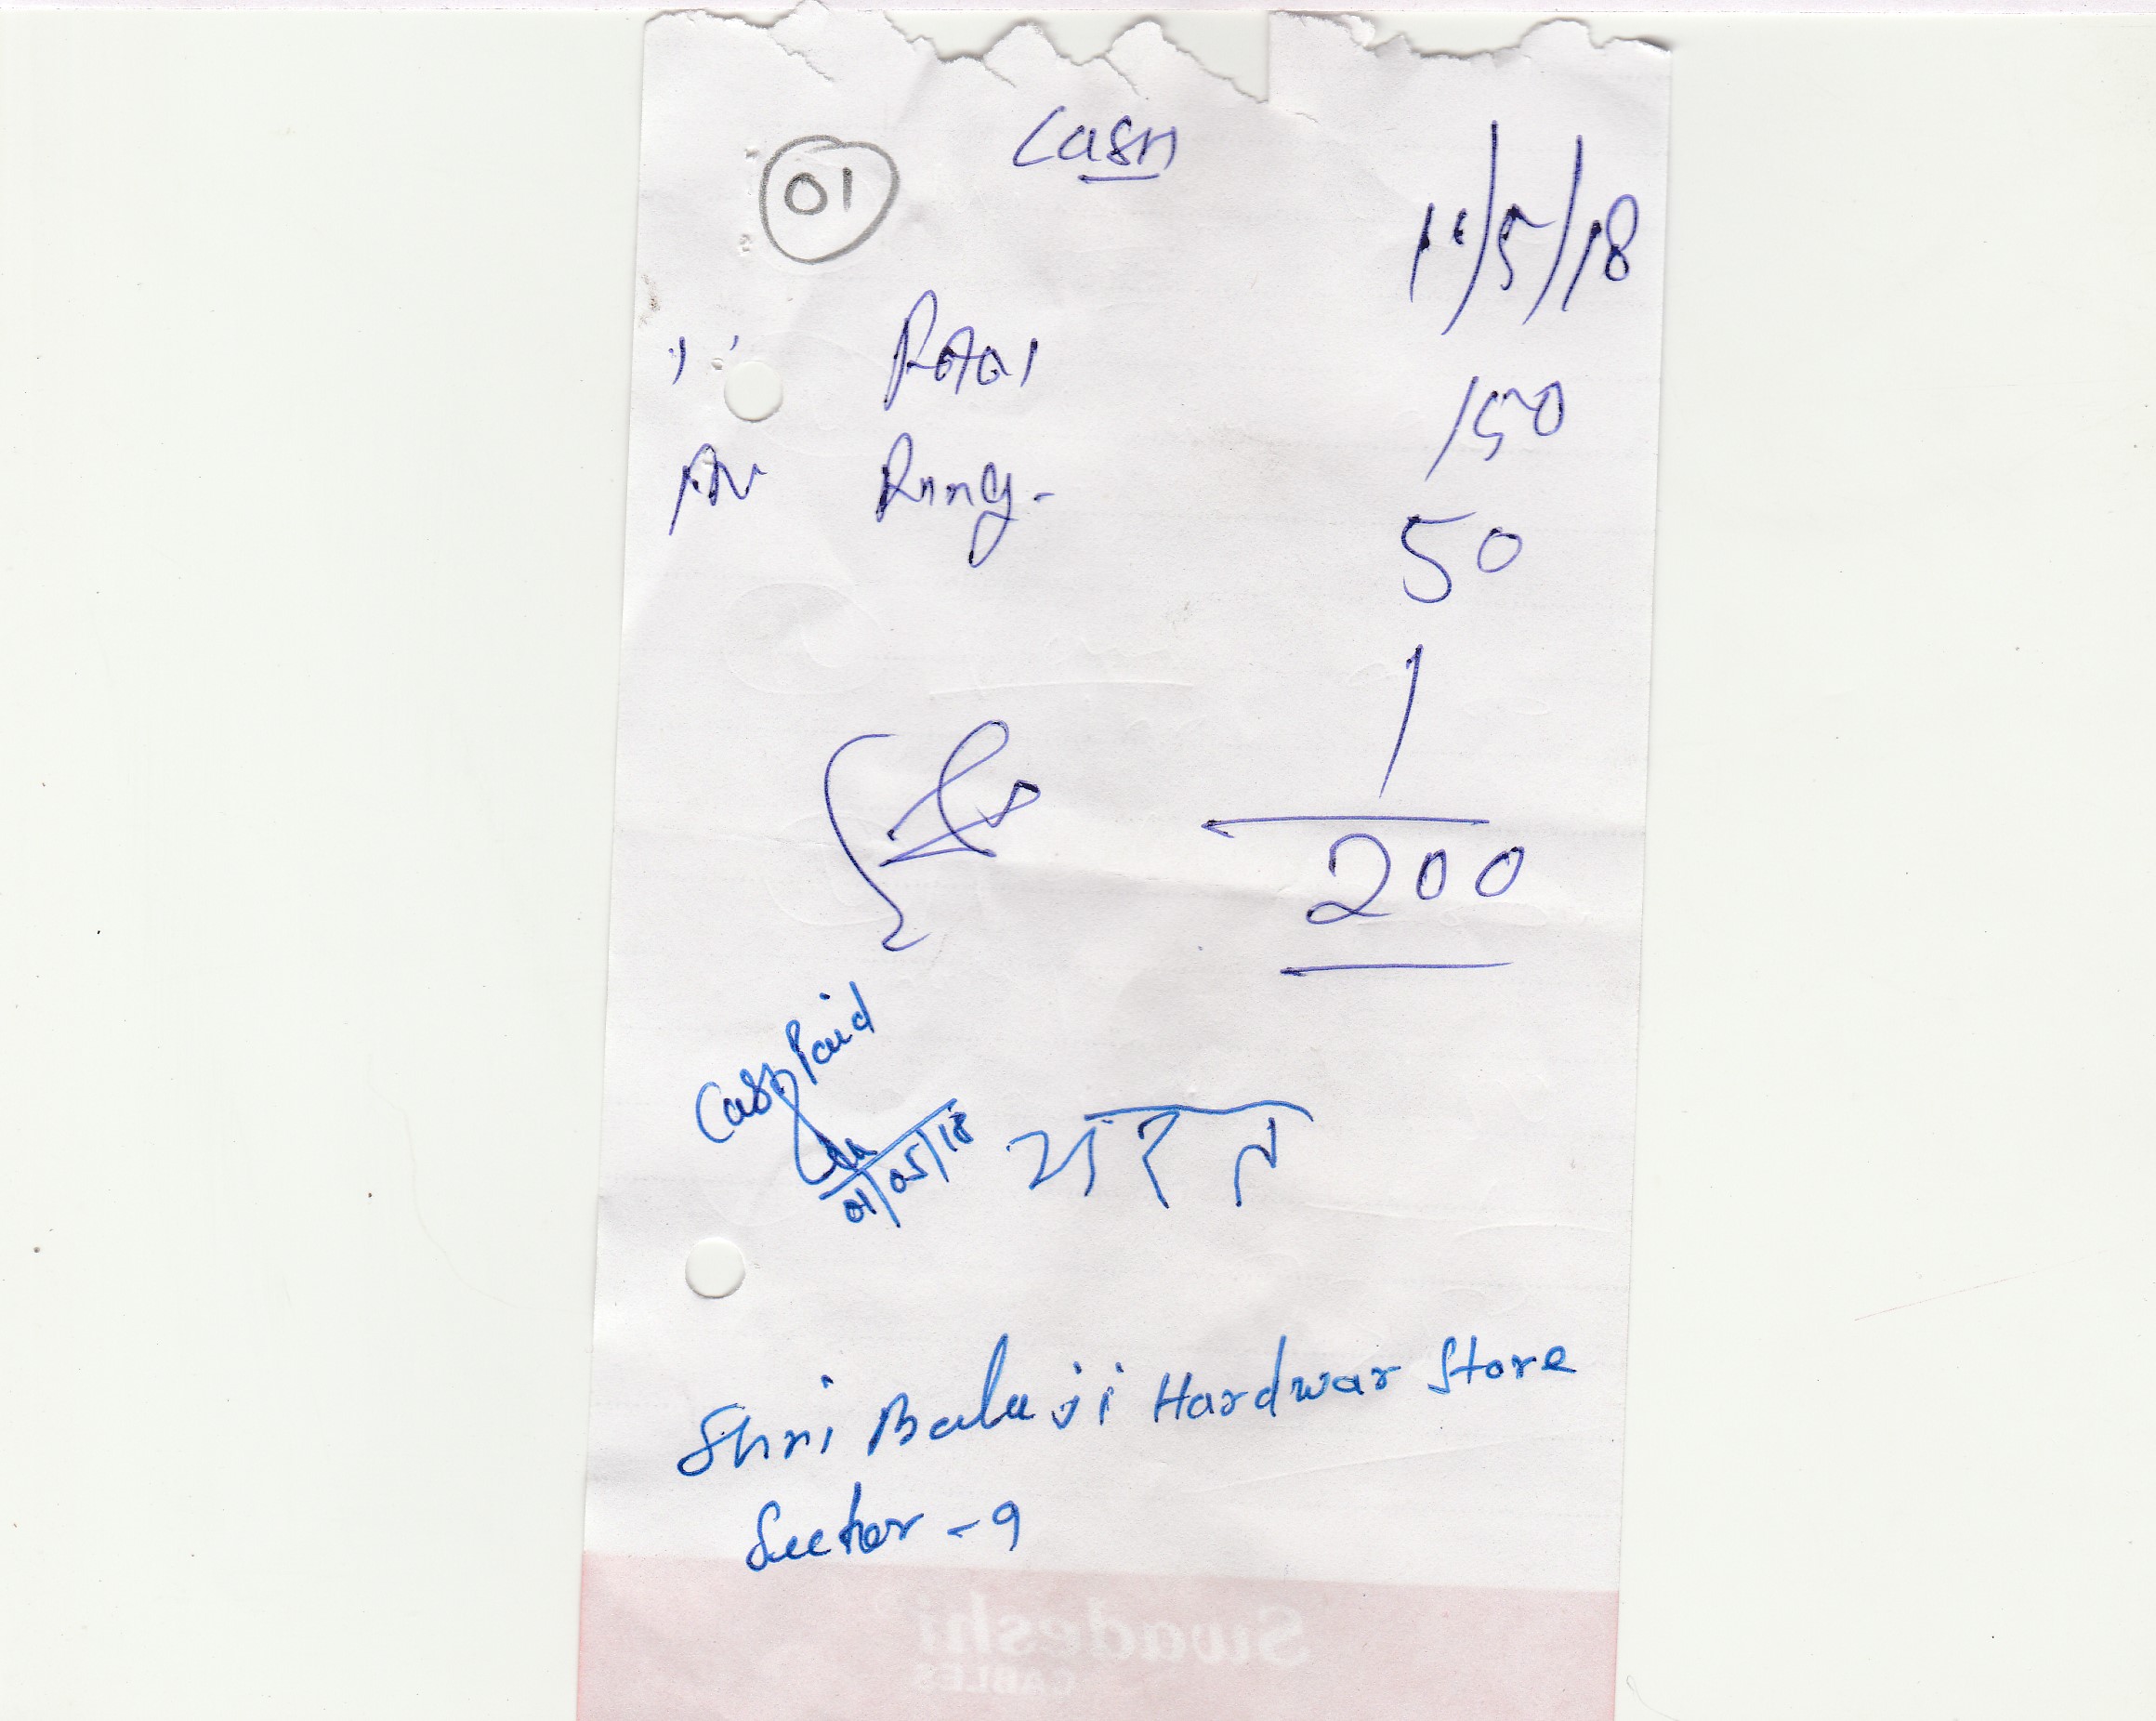 Cash
01
1/5/18
150
Ring -
50
200
Cash Paid
01/05/18
भरत
Shri Balaji Hardwar Store
Sector - 9
Swadeshi
CABLES